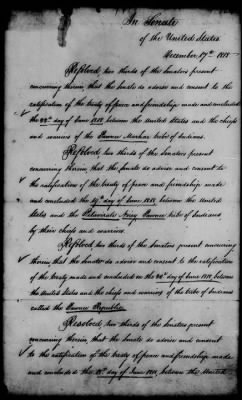 In Senate
of the United States
December 17th 1818
Resolved, two thirds of the Senators present
concurring therein, that the Senate do advise and consent to the
ratification of the treaty of peace and friendship made and concluded
the 22d day of June 1818, between the United States and the chiefs
and warriors of the Pawnee Marhar tribe of Indians.
Resolved, two thirds of the Senators present
concurring therein, that the Senate do advise and consent to
the ratification of the treaty of peace and friendship made
and concluded the day of June 1818, between the United
States and the Noisy Pawnee tribe of Indians
by their chiefs and warriors.
Resolved, two thirds of the Senators present concurring
therein, that the Senate do advise and consent to the ratification
of the treaty made and concluded on the day of June 1818, between
the United States and the chiefs and warriors of the tribe of Indians
called the Pawnee Republic.
Resolved, two thirds of the Senators present
concurring therein, that the Senate do advise and consent
to the ratification of the treaty of peace and friendship made
and concluded the day of June 1818, between the United